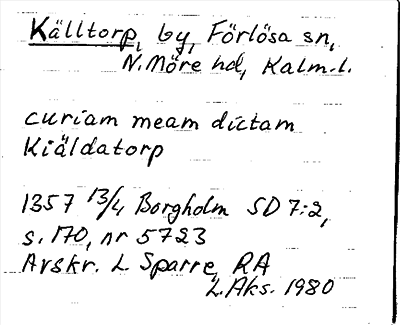 Källtorp, by, Förlösa sn,
N. Möre hd, Kalm. l.
curiam meam dictam
Kiäldatorp
1357 13/4 Borgholm SD 7:2,
s. 170, nr 5723
Avskr. L. Sparre, RA
L. Aks. 1980